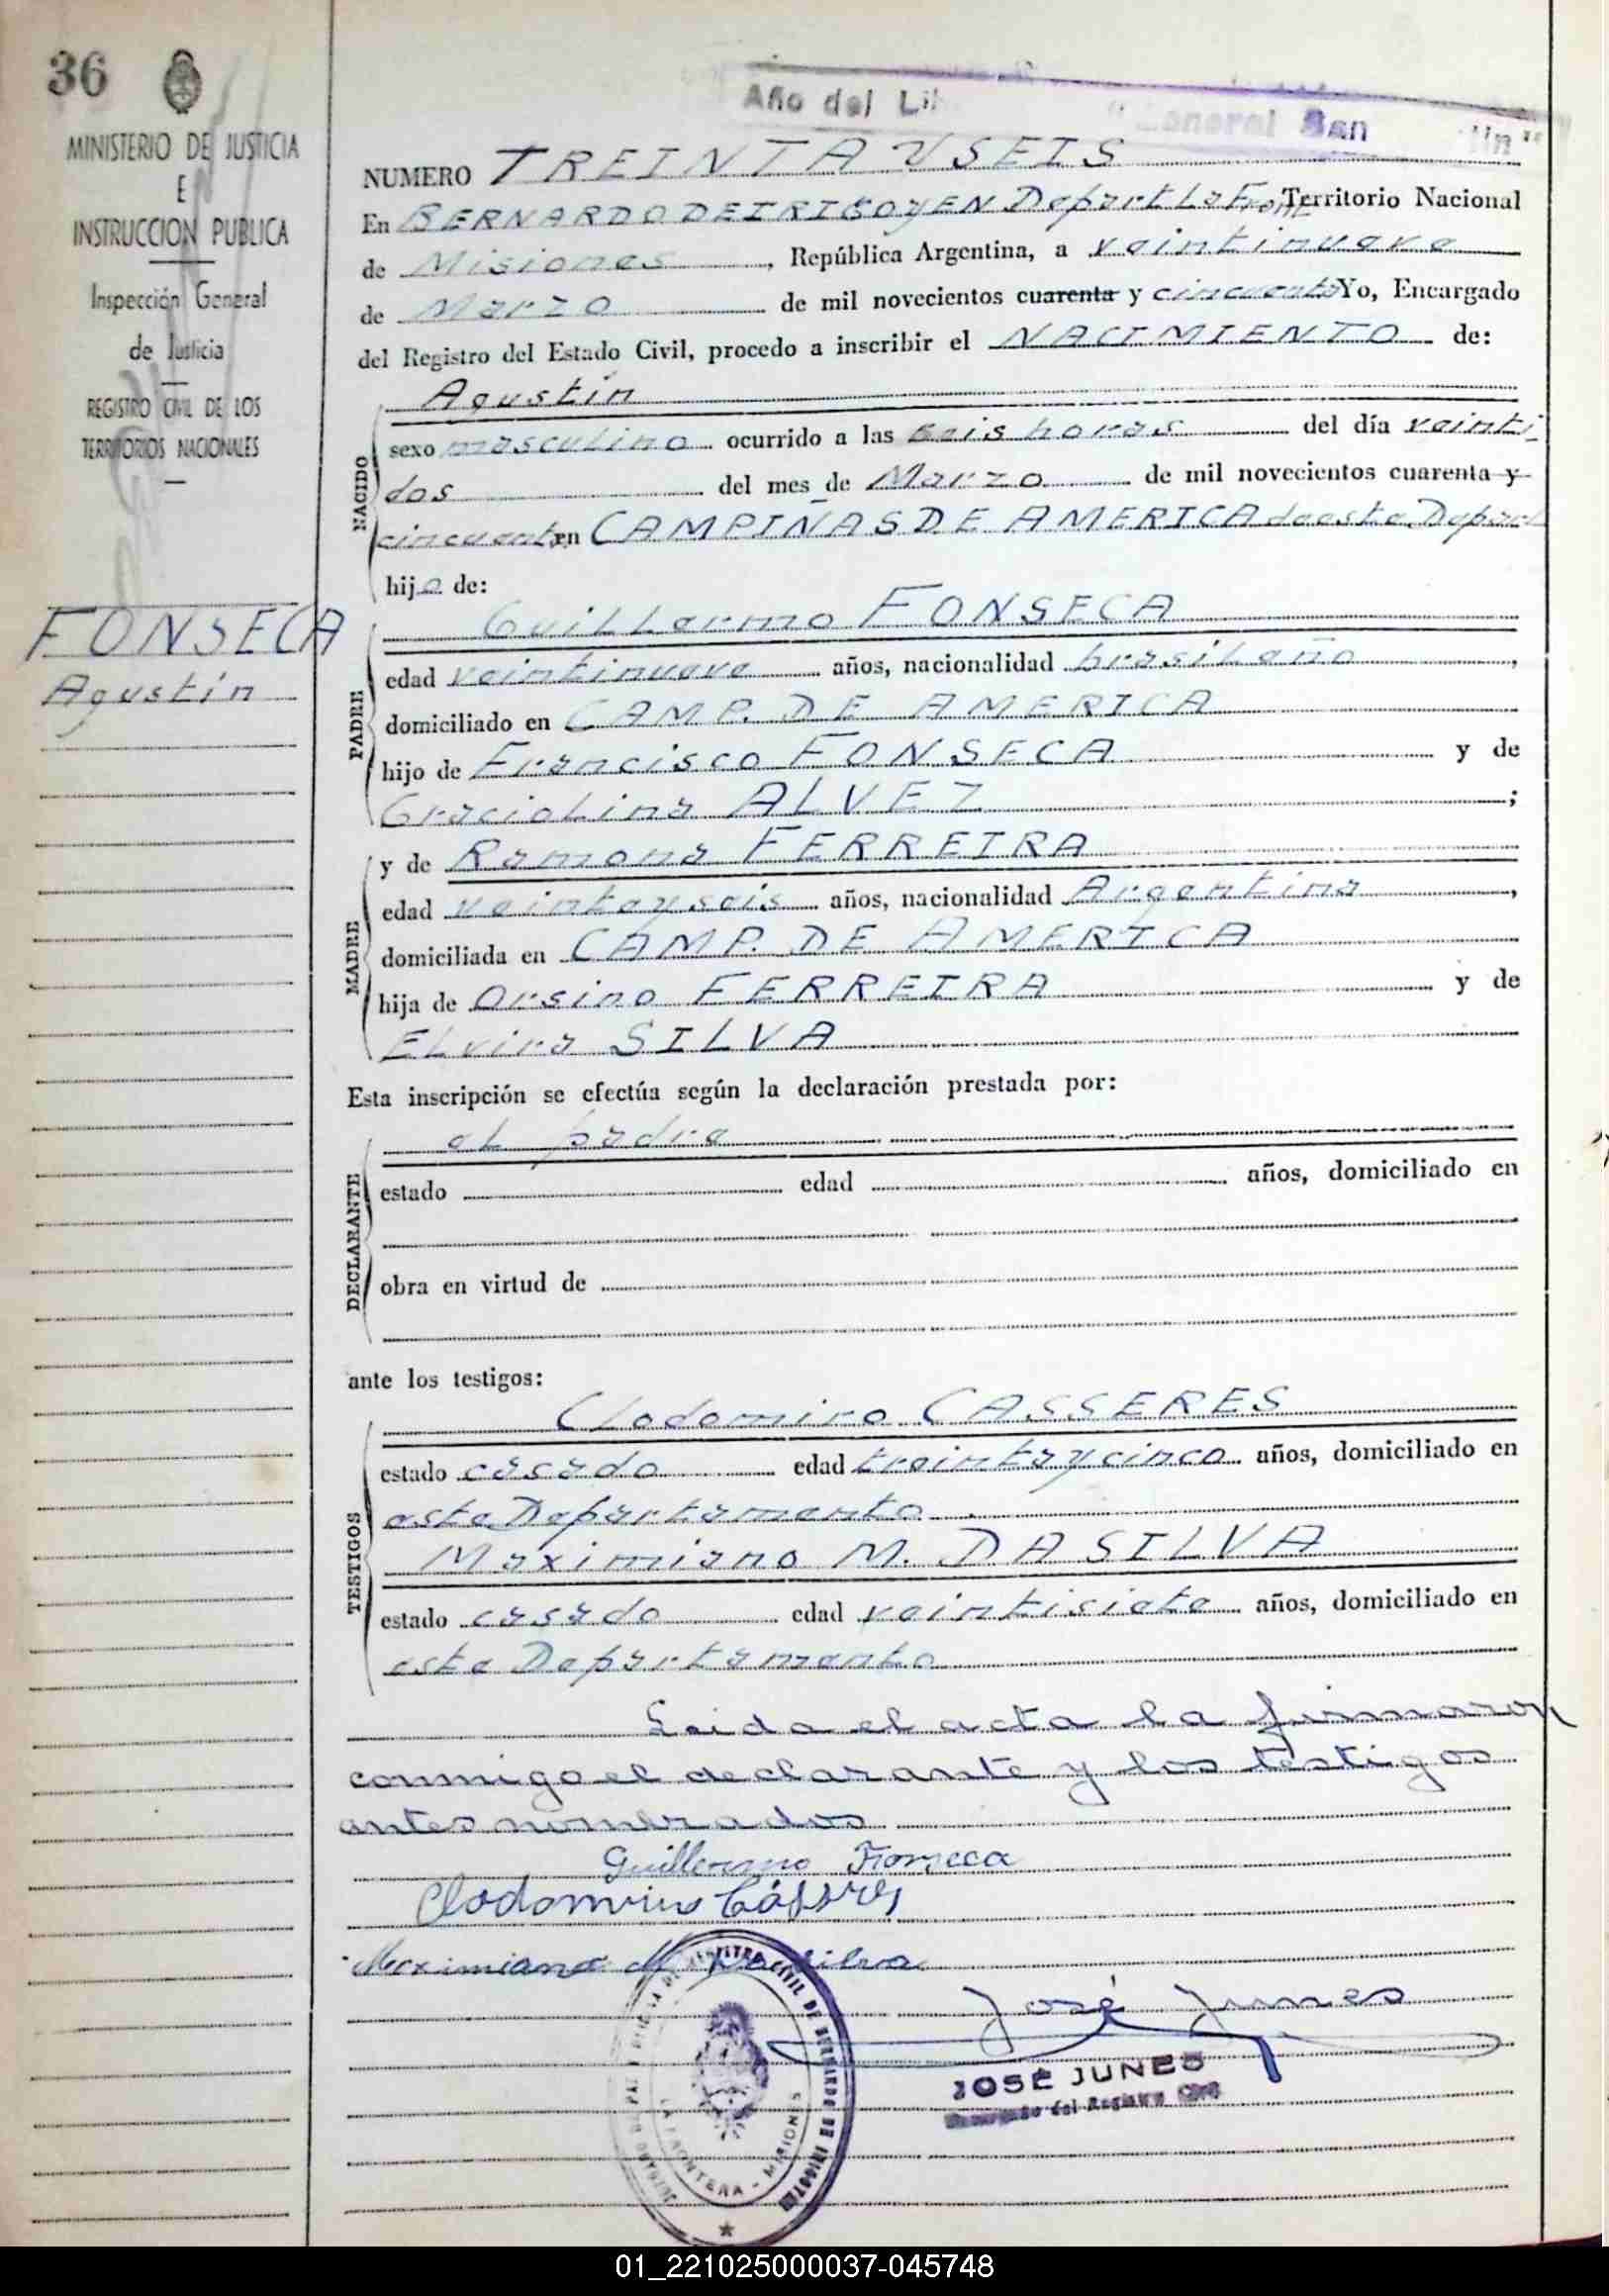 36
MINISTERIO DE JUSTICIA
E
INSTRUCCION PUBLICA
Inspección General
de Justicia
REGISTRO CIVIL DE LOS
TERRITORIOS NACIONALES
FONSECA
Agustín
Año del Li
General San
NUMERO TREINTA Y SEIS
En BERNARDO DE IRIGOYEN Depart La Front Territorio Nacional
de Misiones, República Argentina, a veintinueve
de Marzo de mil novecientos cuarenta y cincuenta Yo, Encargado
del Registro del Estado Civil, procedo a inscribir el NACIMIENTO de:
Agustín
NACIDO
sexo masculino ocurrido a las seis horas del día veinti-
dos del mes de Marzo de mil novecientos cuarenta y
cincuenta en CAMPIÑAS DE AMERICA de este Depart
hijo de:
Guillermo FONSECA
PADRE
edad veintinueve años, nacionalidad brasileño,
domiciliado en CAMP. DE AMERICA
hijo de Francisco FONSECA y de
Graciolina ALVEZ;
y de Ramona FERREIRA
MADRE
edad veinteyseis años, nacionalidad Argentina,
domiciliada en CAMP. DE AMERICA
hija de Orsino FERREIRA y de
Elvira SILVA
Esta inscripción se efectúa según la declaración prestada por:
el padre
DECLARANTE
estado edad años, domiciliado en
obra en virtud de
ante los testigos:
Clodomiro CASSERES
TESTIGOS
estado casado edad treintaycinco años, domiciliado en
este Departamento
Maximiano M. DA SILVA
estado casado edad veintisiete años, domiciliado en
este Departamento
Leida el acta la firmaron
conmigo el declarante y los testigos
antes nombrados
Guillermo Fonseca
Clodomiro Cásseres
Maximiano M Da Silva
José Junes
JOSÉ JUNES
Encargado del Registro Civil
JUZGADO DE PAZ Y OFICINA DE REGISTRO CIVIL DE BERNARDO DE IRIGOYEN
LA FRONTERA - MISIONES
01_221025000037-045748